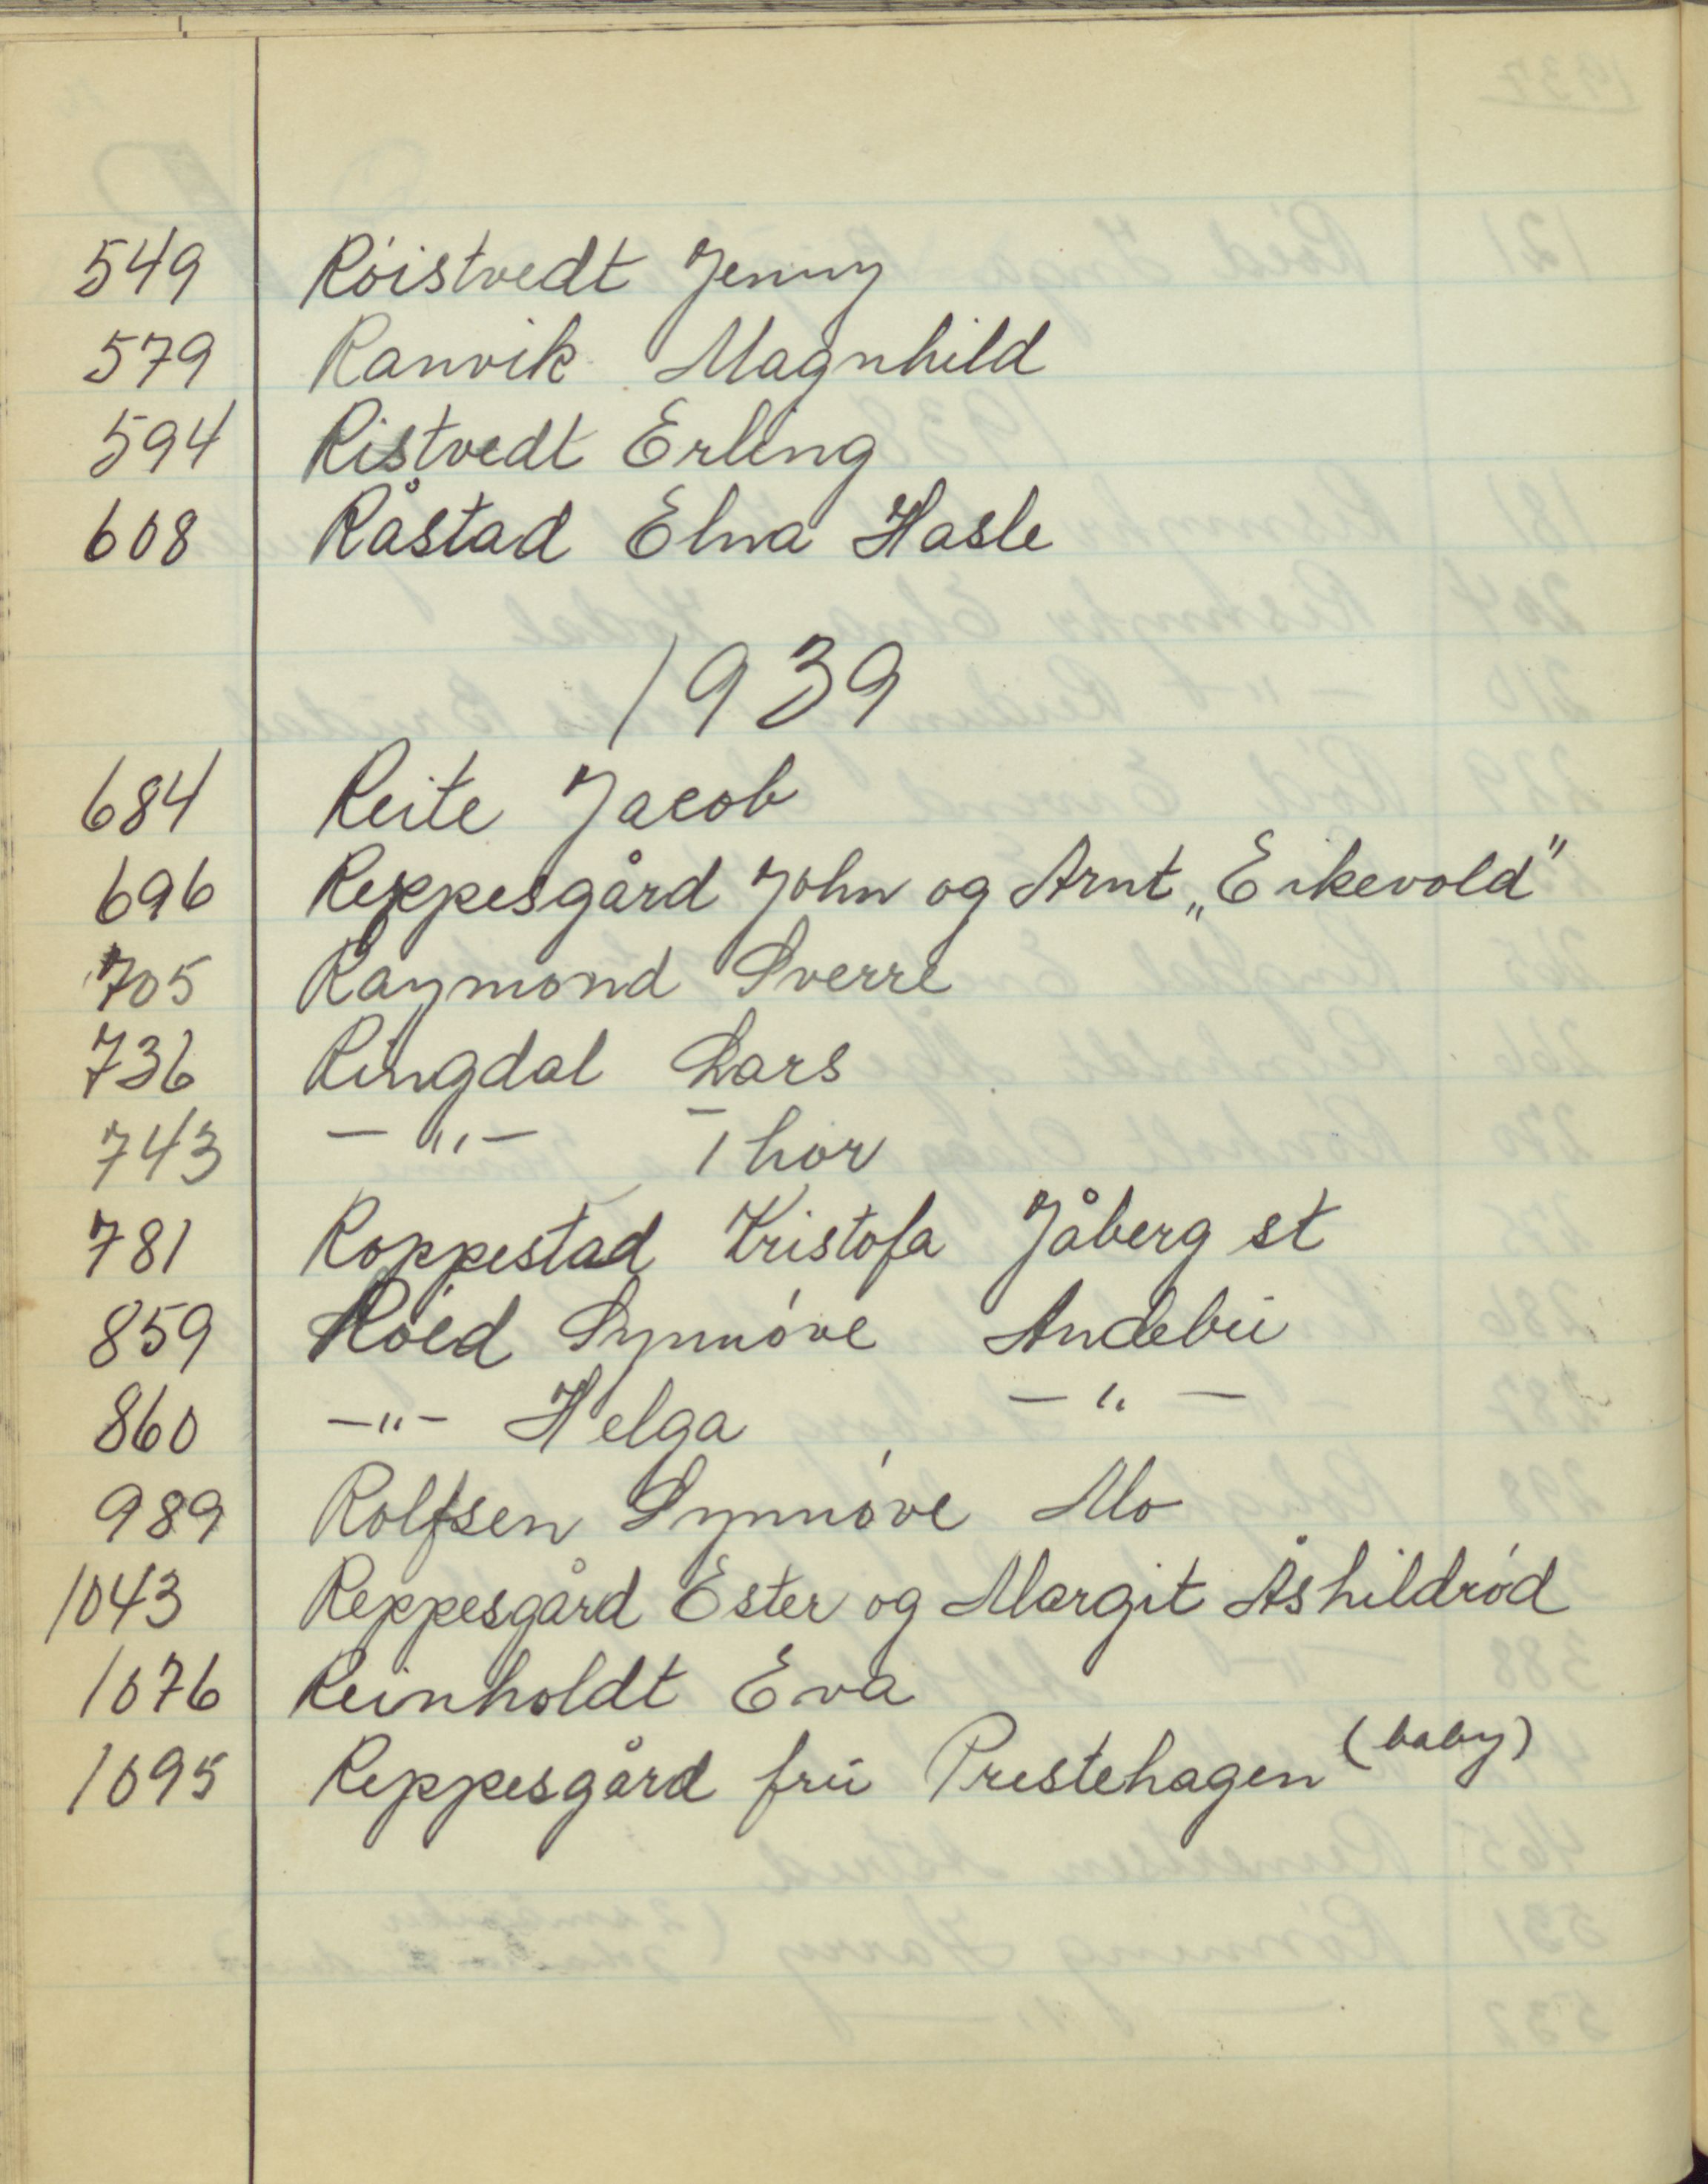 549 Röistvedt Jenny
579 Ranvik Magnhild
594 Ristvedt Erling
608 Råstad Elna Hasle
1939
684 Reite Jacob
696 Reppesgård John og Arnt „Eikevold”
705 Raymond Sverre
736 Ringdal Lars
743 —"— Thor
781 Roppestad Kristofa Jåberg st
859 Röed Synnöve Andebu
860 —"— Helga —"—
989 Rolfsen Synnöve Mo
1043 Reppesgård Ester og Margit Åshildröd
1076 Reinholdt Eva
1095 Reppesgård fru Prestehagen (baby)